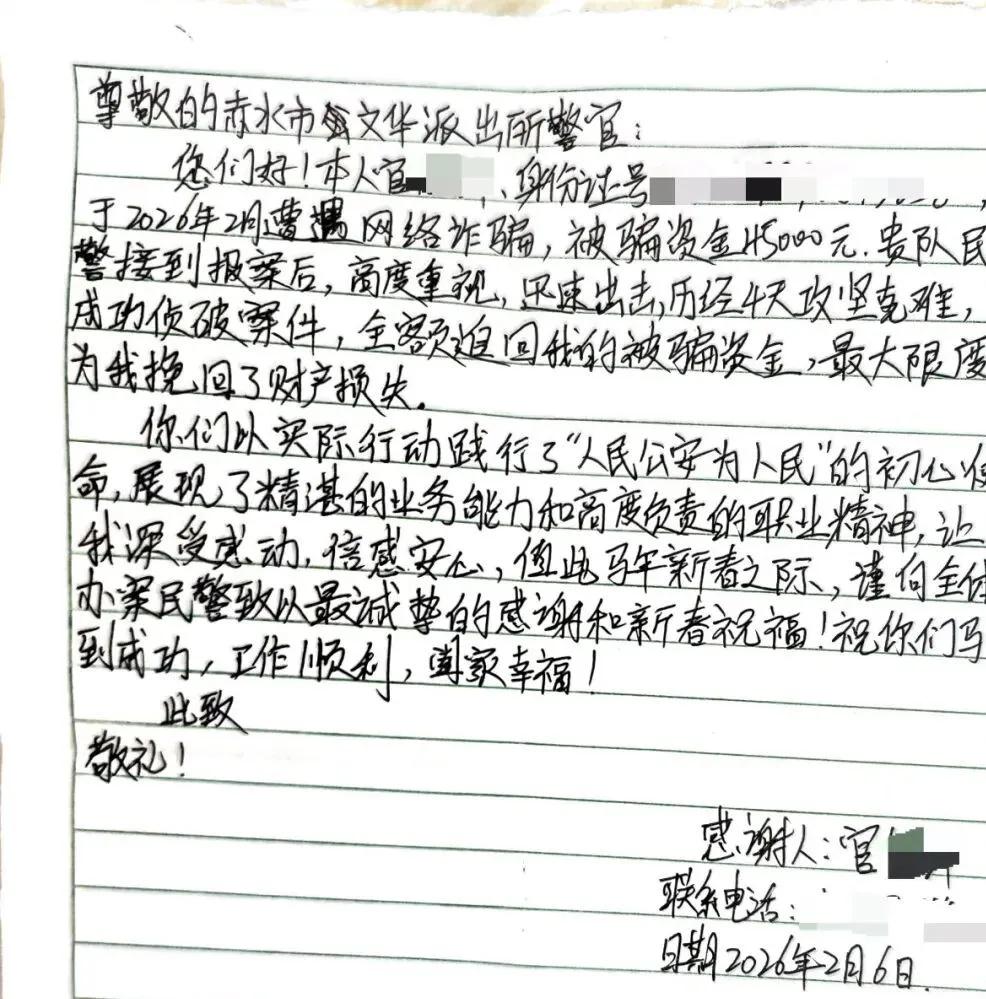 尊敬的赤水市文华派出所警官：
您们好！本人官、身份证号，
于2026年2月遭遇网络诈骗，被骗资金45000元.贵队民
警接到报案后，高度重视，迅速出击，历经4天攻坚克难，
成功侦破案件，全额追回我的被骗资金，最大限度
为我挽回了财产损失.
你们以实际行动践行了“人民公安为人民”的初心使
命，展现了精湛的业务能力和高度负责的职业精神，让
我深受感动，倍感安心，值此马年新春之际，谨向全体
办案民警致以最诚挚的感谢和新春祝福！祝你们马
到成功，工作顺利，阖家幸福！
此致
敬礼！
感谢人：官
联系电话：
日期2026年2月6日.